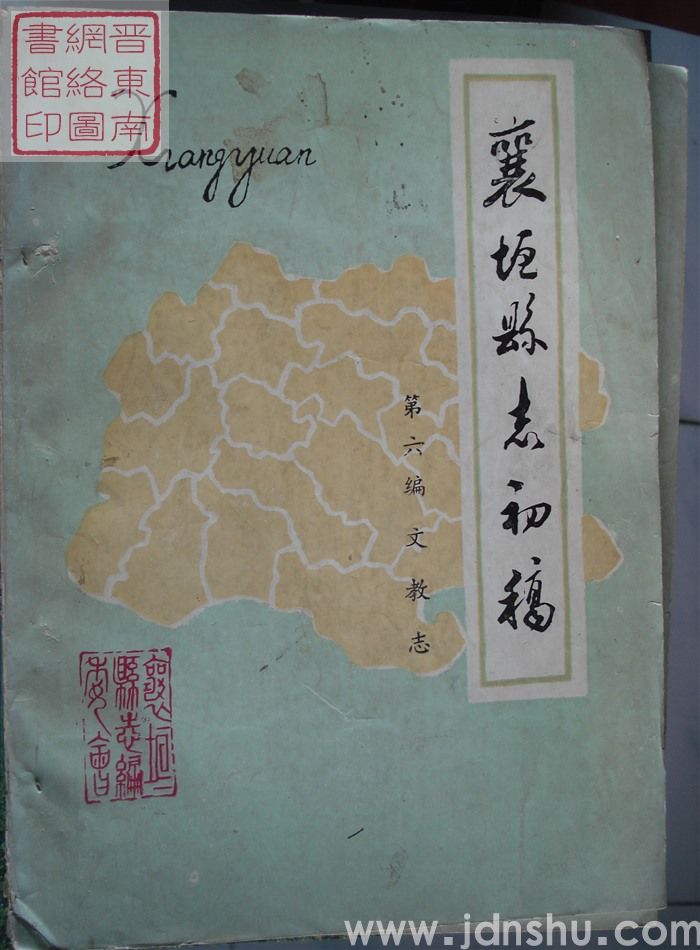 晋東南
網絡圖
書館印
Xiangyuan
襄垣縣志初稿
第六编文教志
襄垣
縣志編
委會
www.jdnshu.com